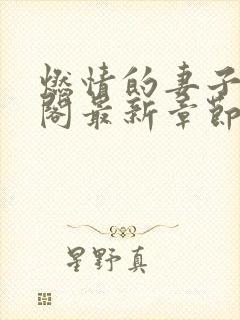 燃情的妻子
阁最新章節
星野真